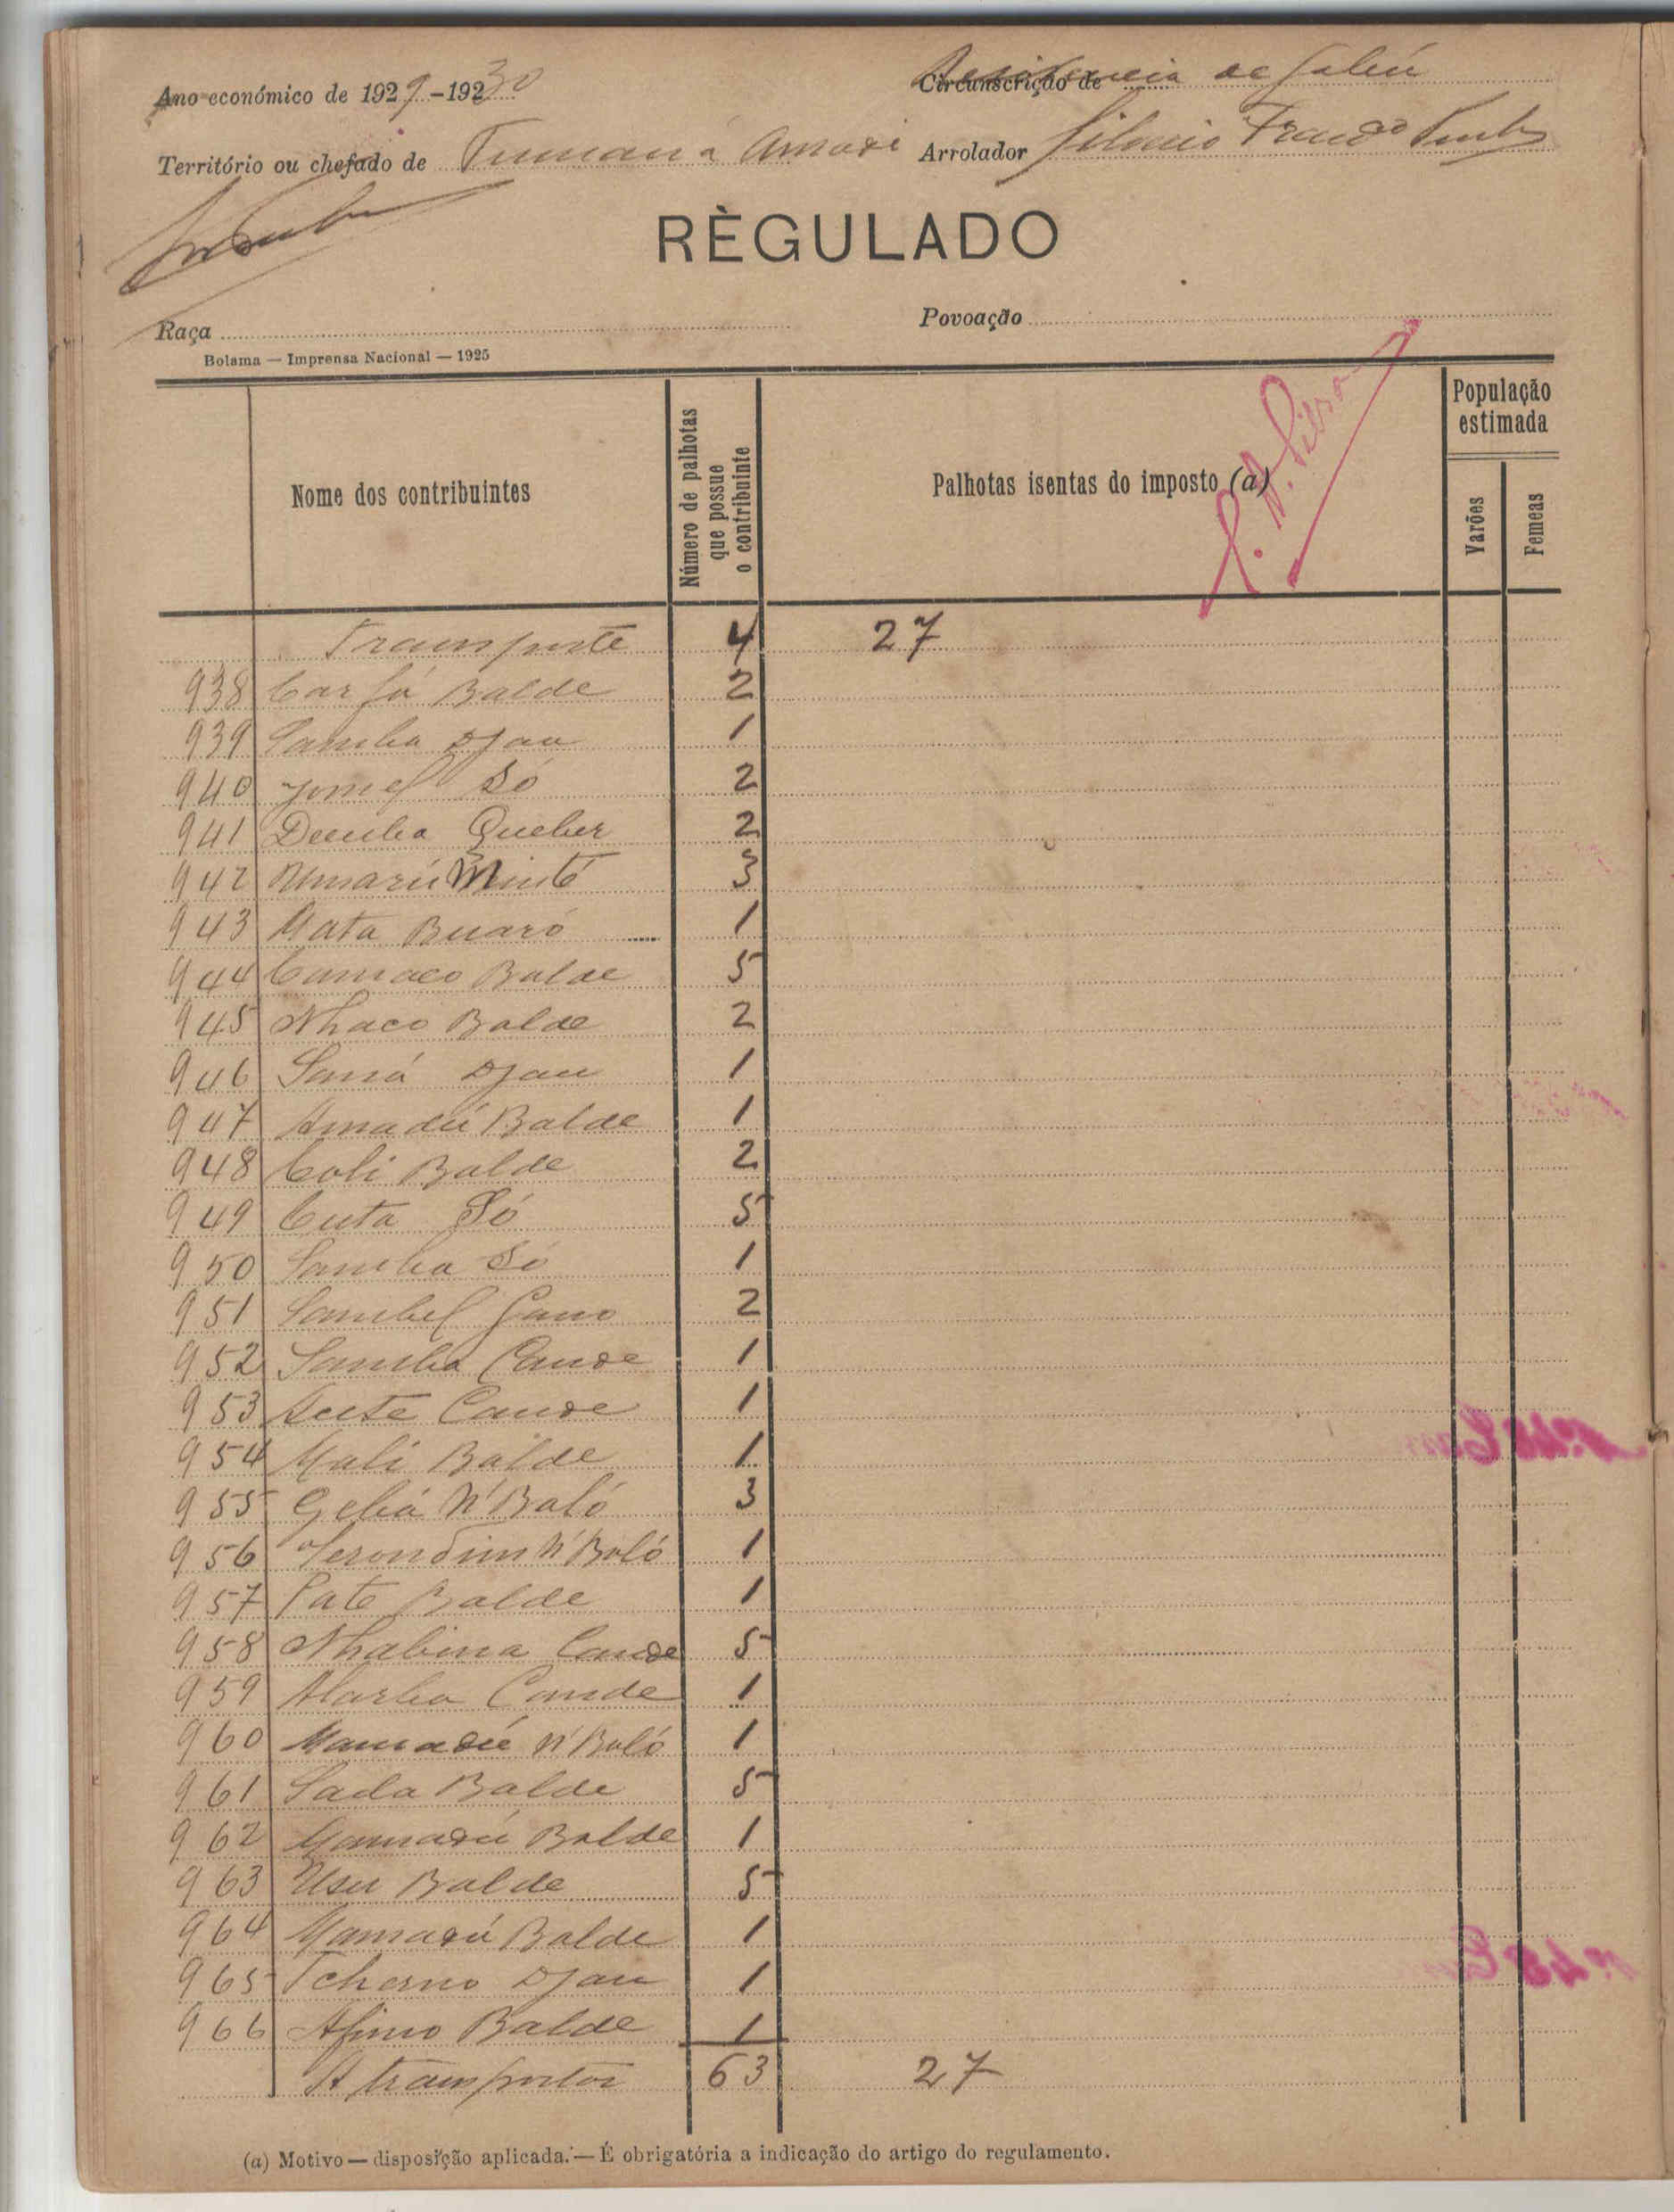 Ano económico de 1929-1930
Circunscrição de Residencia de Gabú
Território ou chefado de Tumaná Amadi Arrolador
RÈGULADO
Raça
Povoação
Bolama — Imprensa Nacional — 1925
Nome dos contribuintes
Número de palhotas que possue o contribuinte
Palhotas isentas do imposto (a)
População estimada
Varões
Femeas
Transporte 4 27
938 Balde 2
939 Samba Djau 1
940 Só 2
941 Demba Queber 2
942 Umarú 3
943 Mata Buaró 1
944 Camaco Balde 5
945 Nhaco Balde 2
946 Saná Djau 1
947 Amadú Balde 1
948 Coli Balde 2
949 Cuta Só 5
950 Samba Só 1
951 Sambel Gano 2
952 Samba Cande 1
953 Cande 1
954 Mali Balde 1
955 Gebá N'Baló 3
956 N'Baló 1
957 Pate Balde 1
958 Nhabina Cande 5
959 Cande 1
960 Mamadú N'Baló 1
961 Sada Balde 5
962 Mamadú Balde 1
963 Usu Balde 5
964 Mamadú Balde 1
965 Tcherno Djau 1
966 Balde 1
A transportar 63 27
(a) Motivo — disposição aplicada. — É obrigatória a indicação do artigo do regulamento.